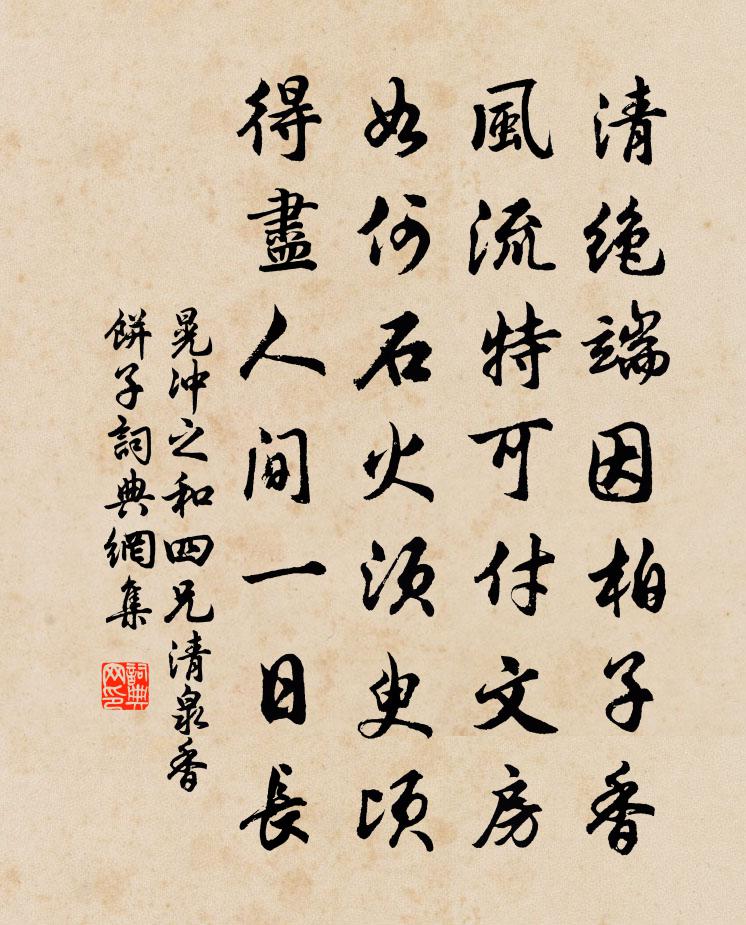 清絶端因柏子香
風流特可付文房
如何石火須臾頃
得盡人間一日長
晁沖之和四兄清泉香
餅子詞典網集
詞典網印